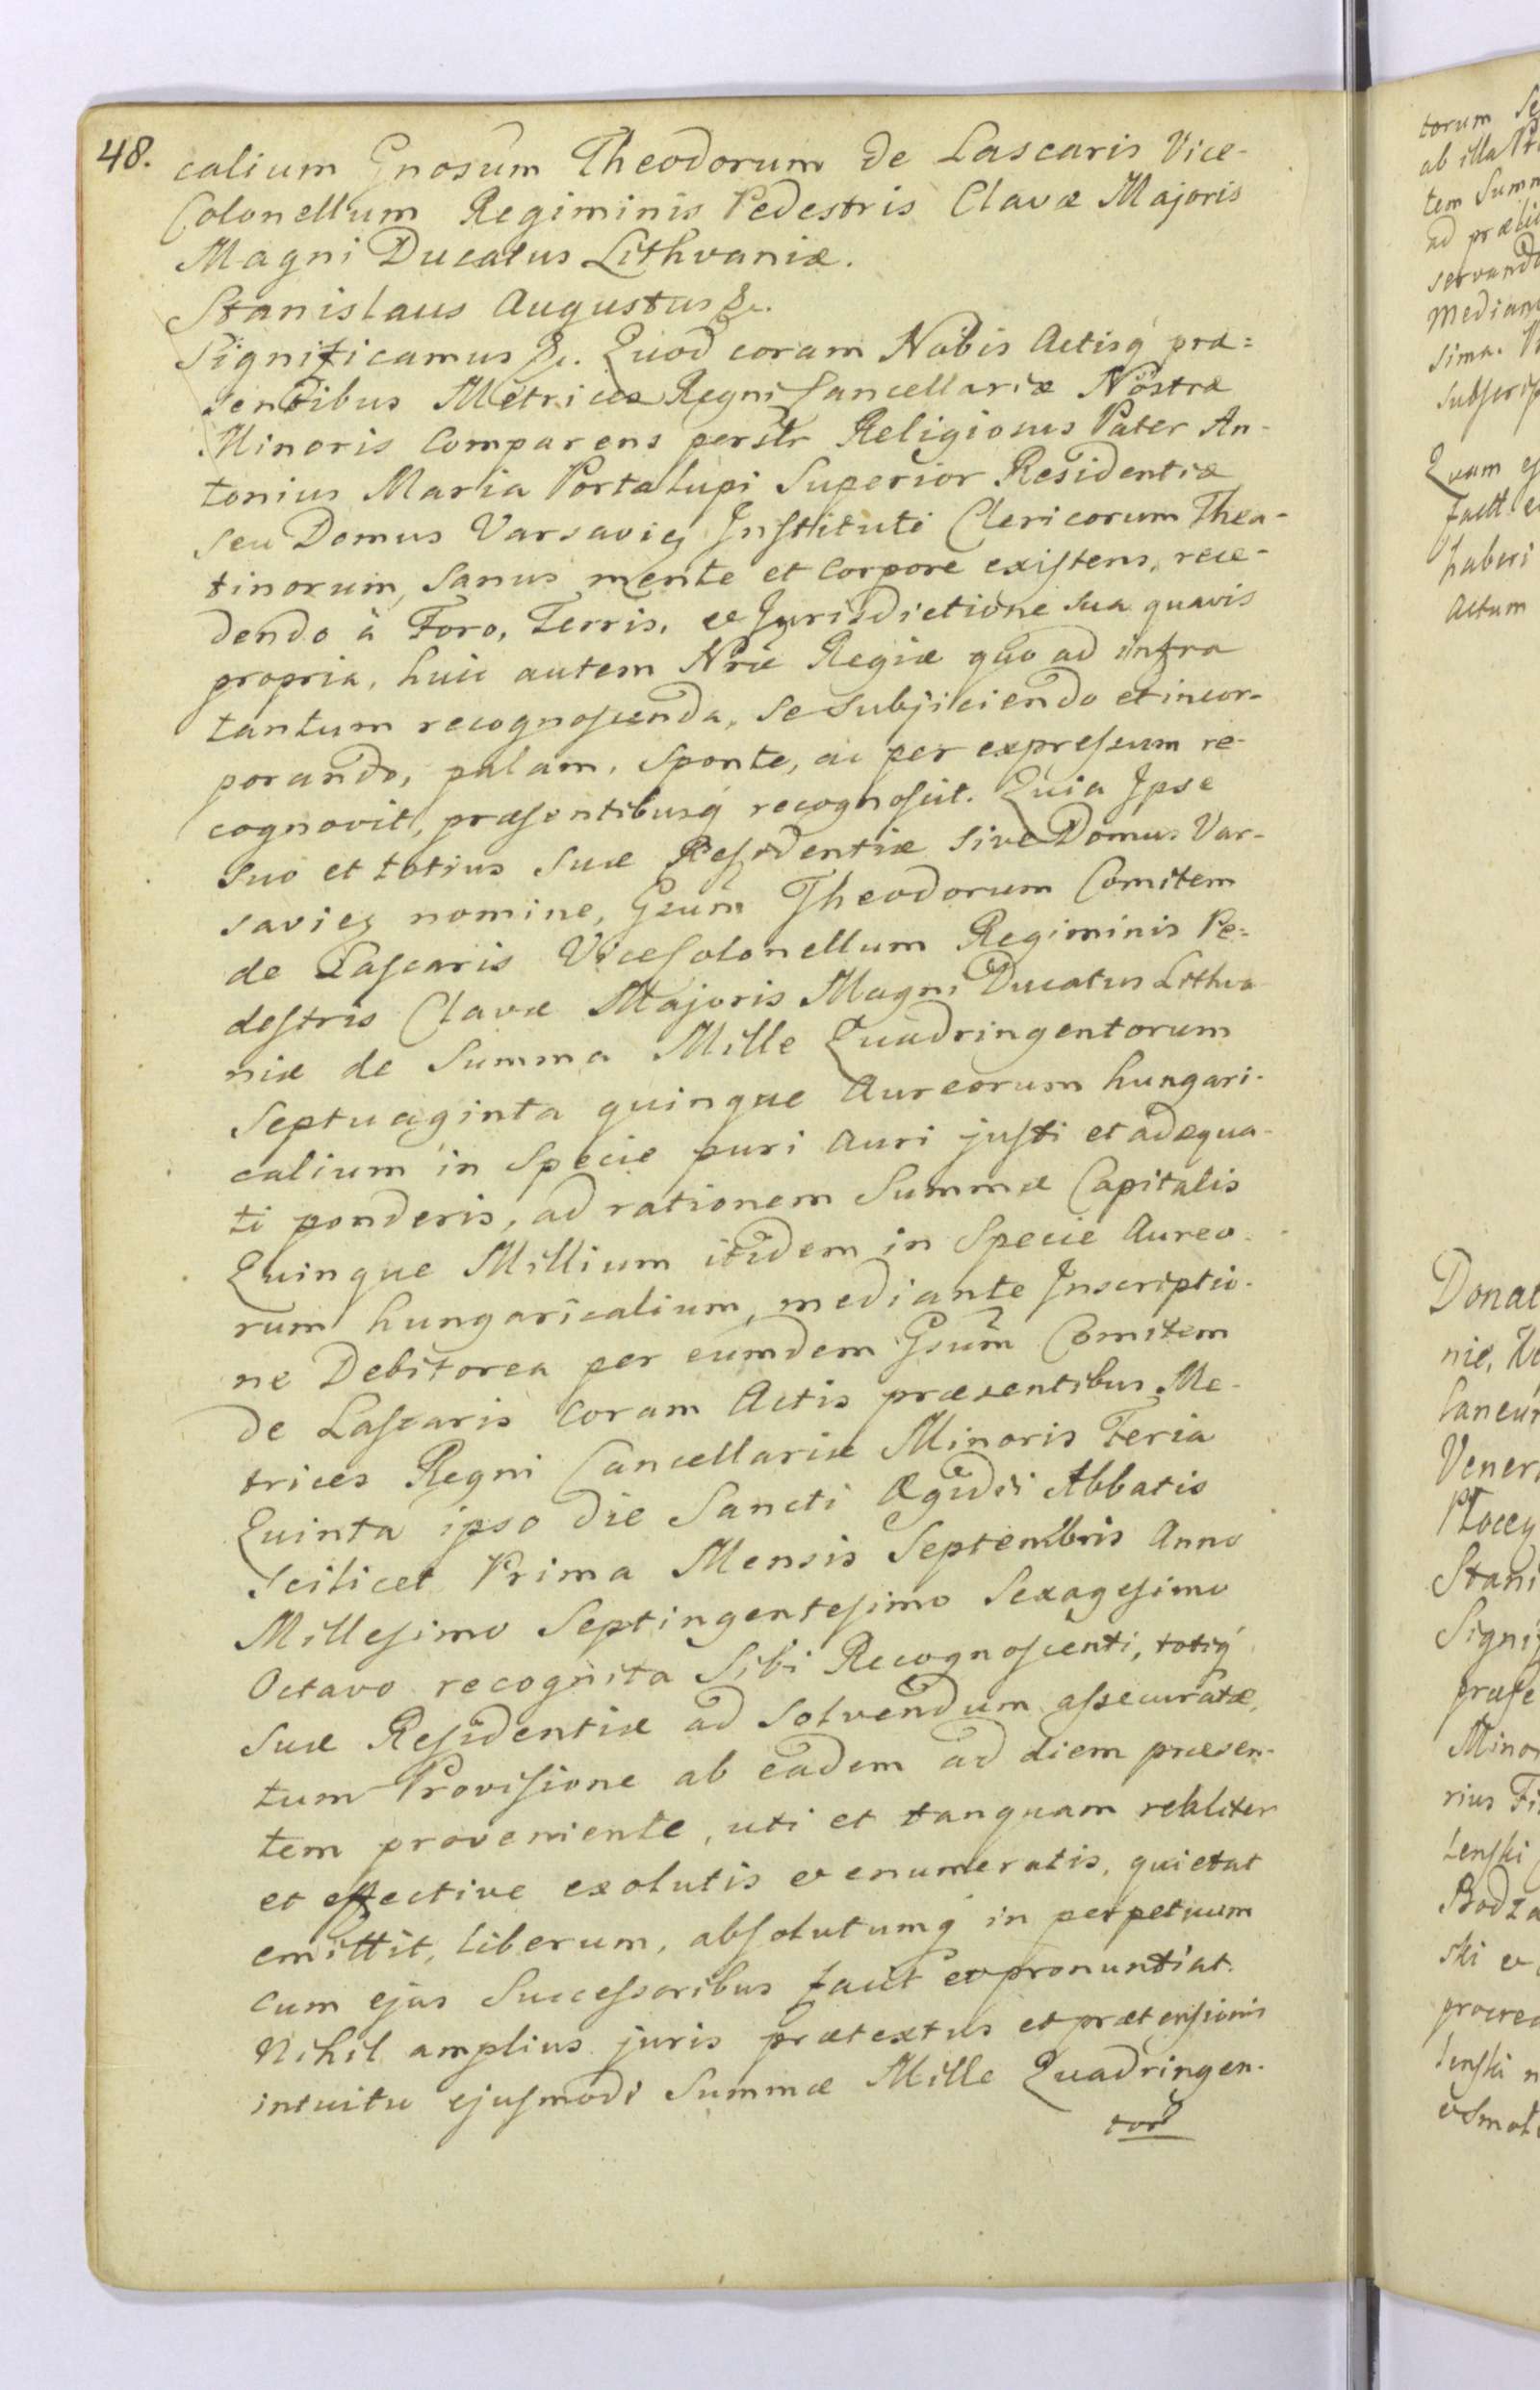 48.
calium Gnosum Theodorum de Lascaris Vice-
Colonellum Regiminis Pedestris Clavæ Majoris
Magni Ducatus Lithvaniæ.
Stanislaus Augustus &c.
Significamus &c. Quod coram Nobis Actisq́ præ=
sentibus Metrices Regni Cancellariæ Nostræ
Minoris Comparens persltr Religiosus Pater An-
tonius Maria Portalupi Superior Residentiæ
seu Domus Varsavieꝫ Instituti Clericorum Thea-
tinorum, sanus mente et Corpore existens, rece-
dendo à Foro, Terris, et Jurisdictione sua quavis
propria, huic autem Nræ Regiæ quo ad infra
tantum recognoscenda, se subjiciendo et incor-
porando, palam, sponte, ac per expressum re-
cognovit, præsentibusq́ recognoscit. Quia Ipse
suo et totius suæ Residentiæ sive Domus Var-
savieꝫ nomine, Gsum Theodorum Comitem
de Lascaris ViceColonellum Regiminis Pe=
destris Clavæ Majoris Magni Ducatus Lithva
niæ de Summa Mille Quadringentorum
Septuaginta quinque Aureorum hungari-
calium in Specie puri Auri justi et adæqua-
ti ponderis, ad rationem Summæ Capitalis
Quinque Millium itidem in Specie Aureo-
rum hungaricalium, mediante Inscriptio-
ne Debitorea per eumdem Gsum Comitem
de Lascaris Coram Actis præsentibus Me-
trices Regni Cancellariæ Minoris Feria
Quinta ipso die Sancti Ægidii Abbatis
scilicet Prima Mensis Septembris Anno
Millesimo Septingentesimo Sexagesimo
Octavo recognita Sibi Recognoscenti, totiq́
suæ Residentiæ ad solvendum assecuratæ,
tum Provisione ab eadem ad diem præsen-
tem proveniente, uti et tanquam realiter
et effective exolutis et enumeratis, quietat
emittit, liberum, absolutumq́ in perpetuum
cum ejus Successoribus facit et pronuntiat.
Nihil amplius juris prætextus et prætensionis
intuitu ejusmodi Summæ Mille Quadringen-
tor
torum
ab illa
tem Summ
ad
servand
median
sima.
subscrip
Quam
factt
haberi
Actum
Donat
nie,
Caneu
Vener
Plocey
Stani
Signif
præse
Minor
rius
lenski
Bodza
ski et
procrea
lenski n